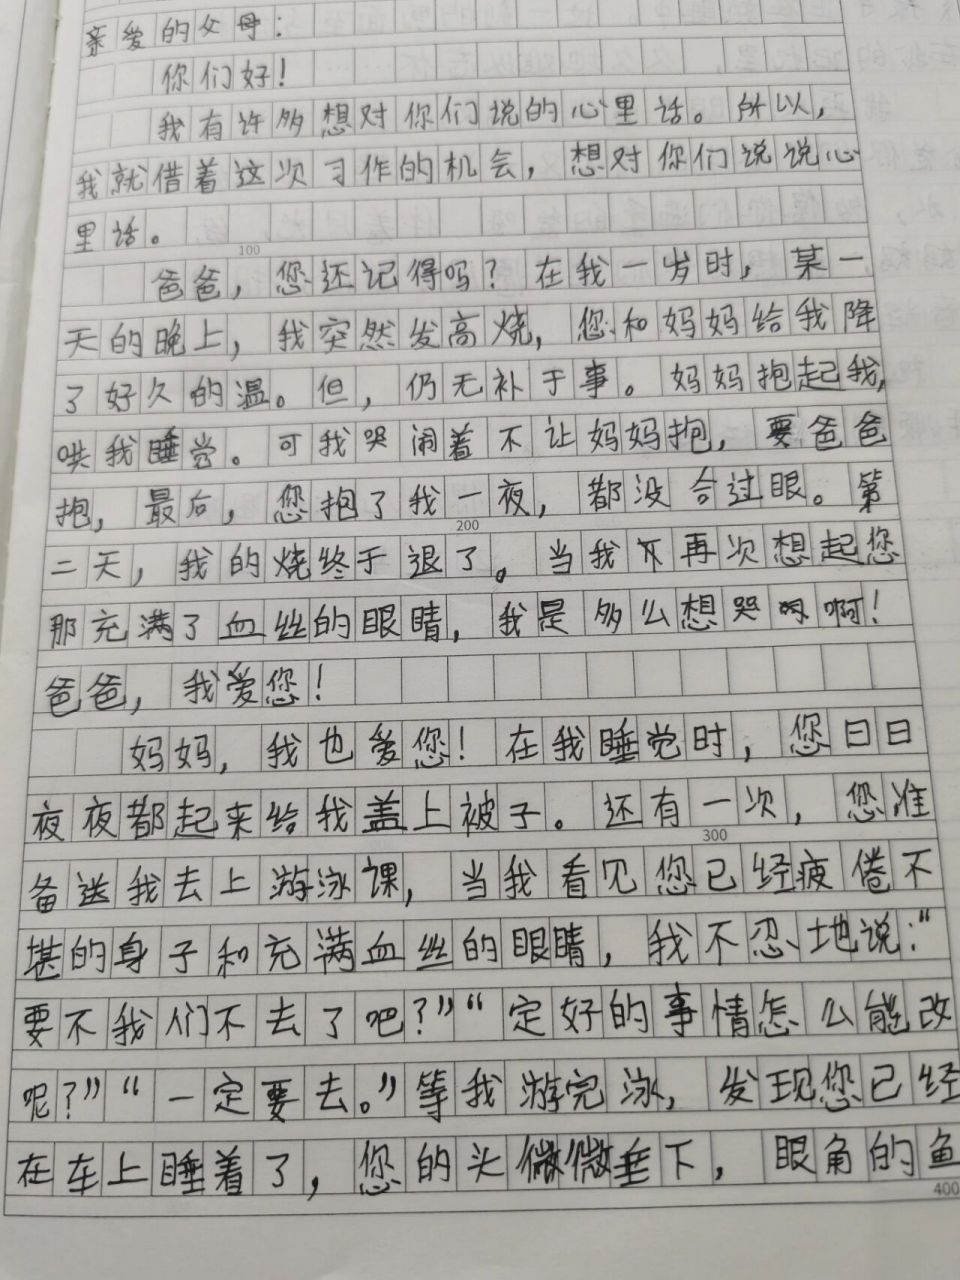 亲爱的父母：
你们好！
我有许多想对你们说的心里话。所以，
我就借着这次习作的机会，想对你们说说心
里话。
100
爸爸，您还记得吗？在我一岁时，某一
天的晚上，我突然发高烧，您和妈妈给我降
了好久的温。但，仍无补于事。妈妈抱起我，
哄我睡觉。可我哭闹着不让妈妈抱，要爸爸
抱，最后，您抱了我一夜，都没合过眼。第
200
二天，我的烧终于退了。当我再次想起您
那充满了血丝的眼睛，我是多么想哭啊！
爸爸，我爱您！
妈妈，我也爱您！在我睡觉时，您日日
夜夜都起来给我盖上被子。还有一次，您准
300
备送我去上游泳课，当我看见您已经疲倦不
堪的身子和充满血丝的眼睛，我不忍地说：“
要不我们不去了吧？”“定好的事情怎么能改
呢？”“一定要去。”等我游完泳，发现您已经
在车上睡着了，您的头微微垂下，眼角的鱼
400